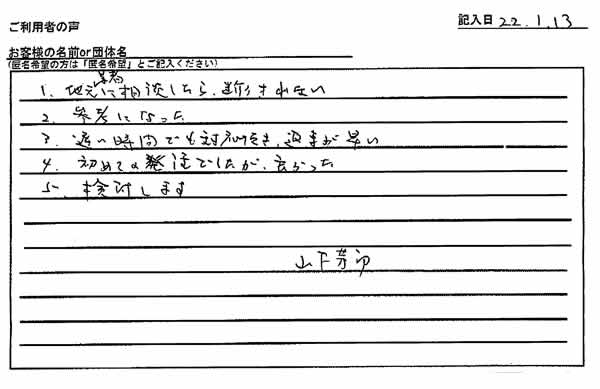 ご利用者の声
記入日 22.1.13
お客様の名前or団体名
(匿名希望の方は「匿名希望」とご記入ください)
業者
1. 地元に相談したら、断られない
2. 参考になった
3. 遅い時間でも対応頂き、返事が早い
4. 初めての発注でしたが、良かった
5. 検討します
山下